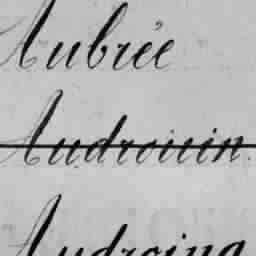 Aubrée
Audrouin
Audroing